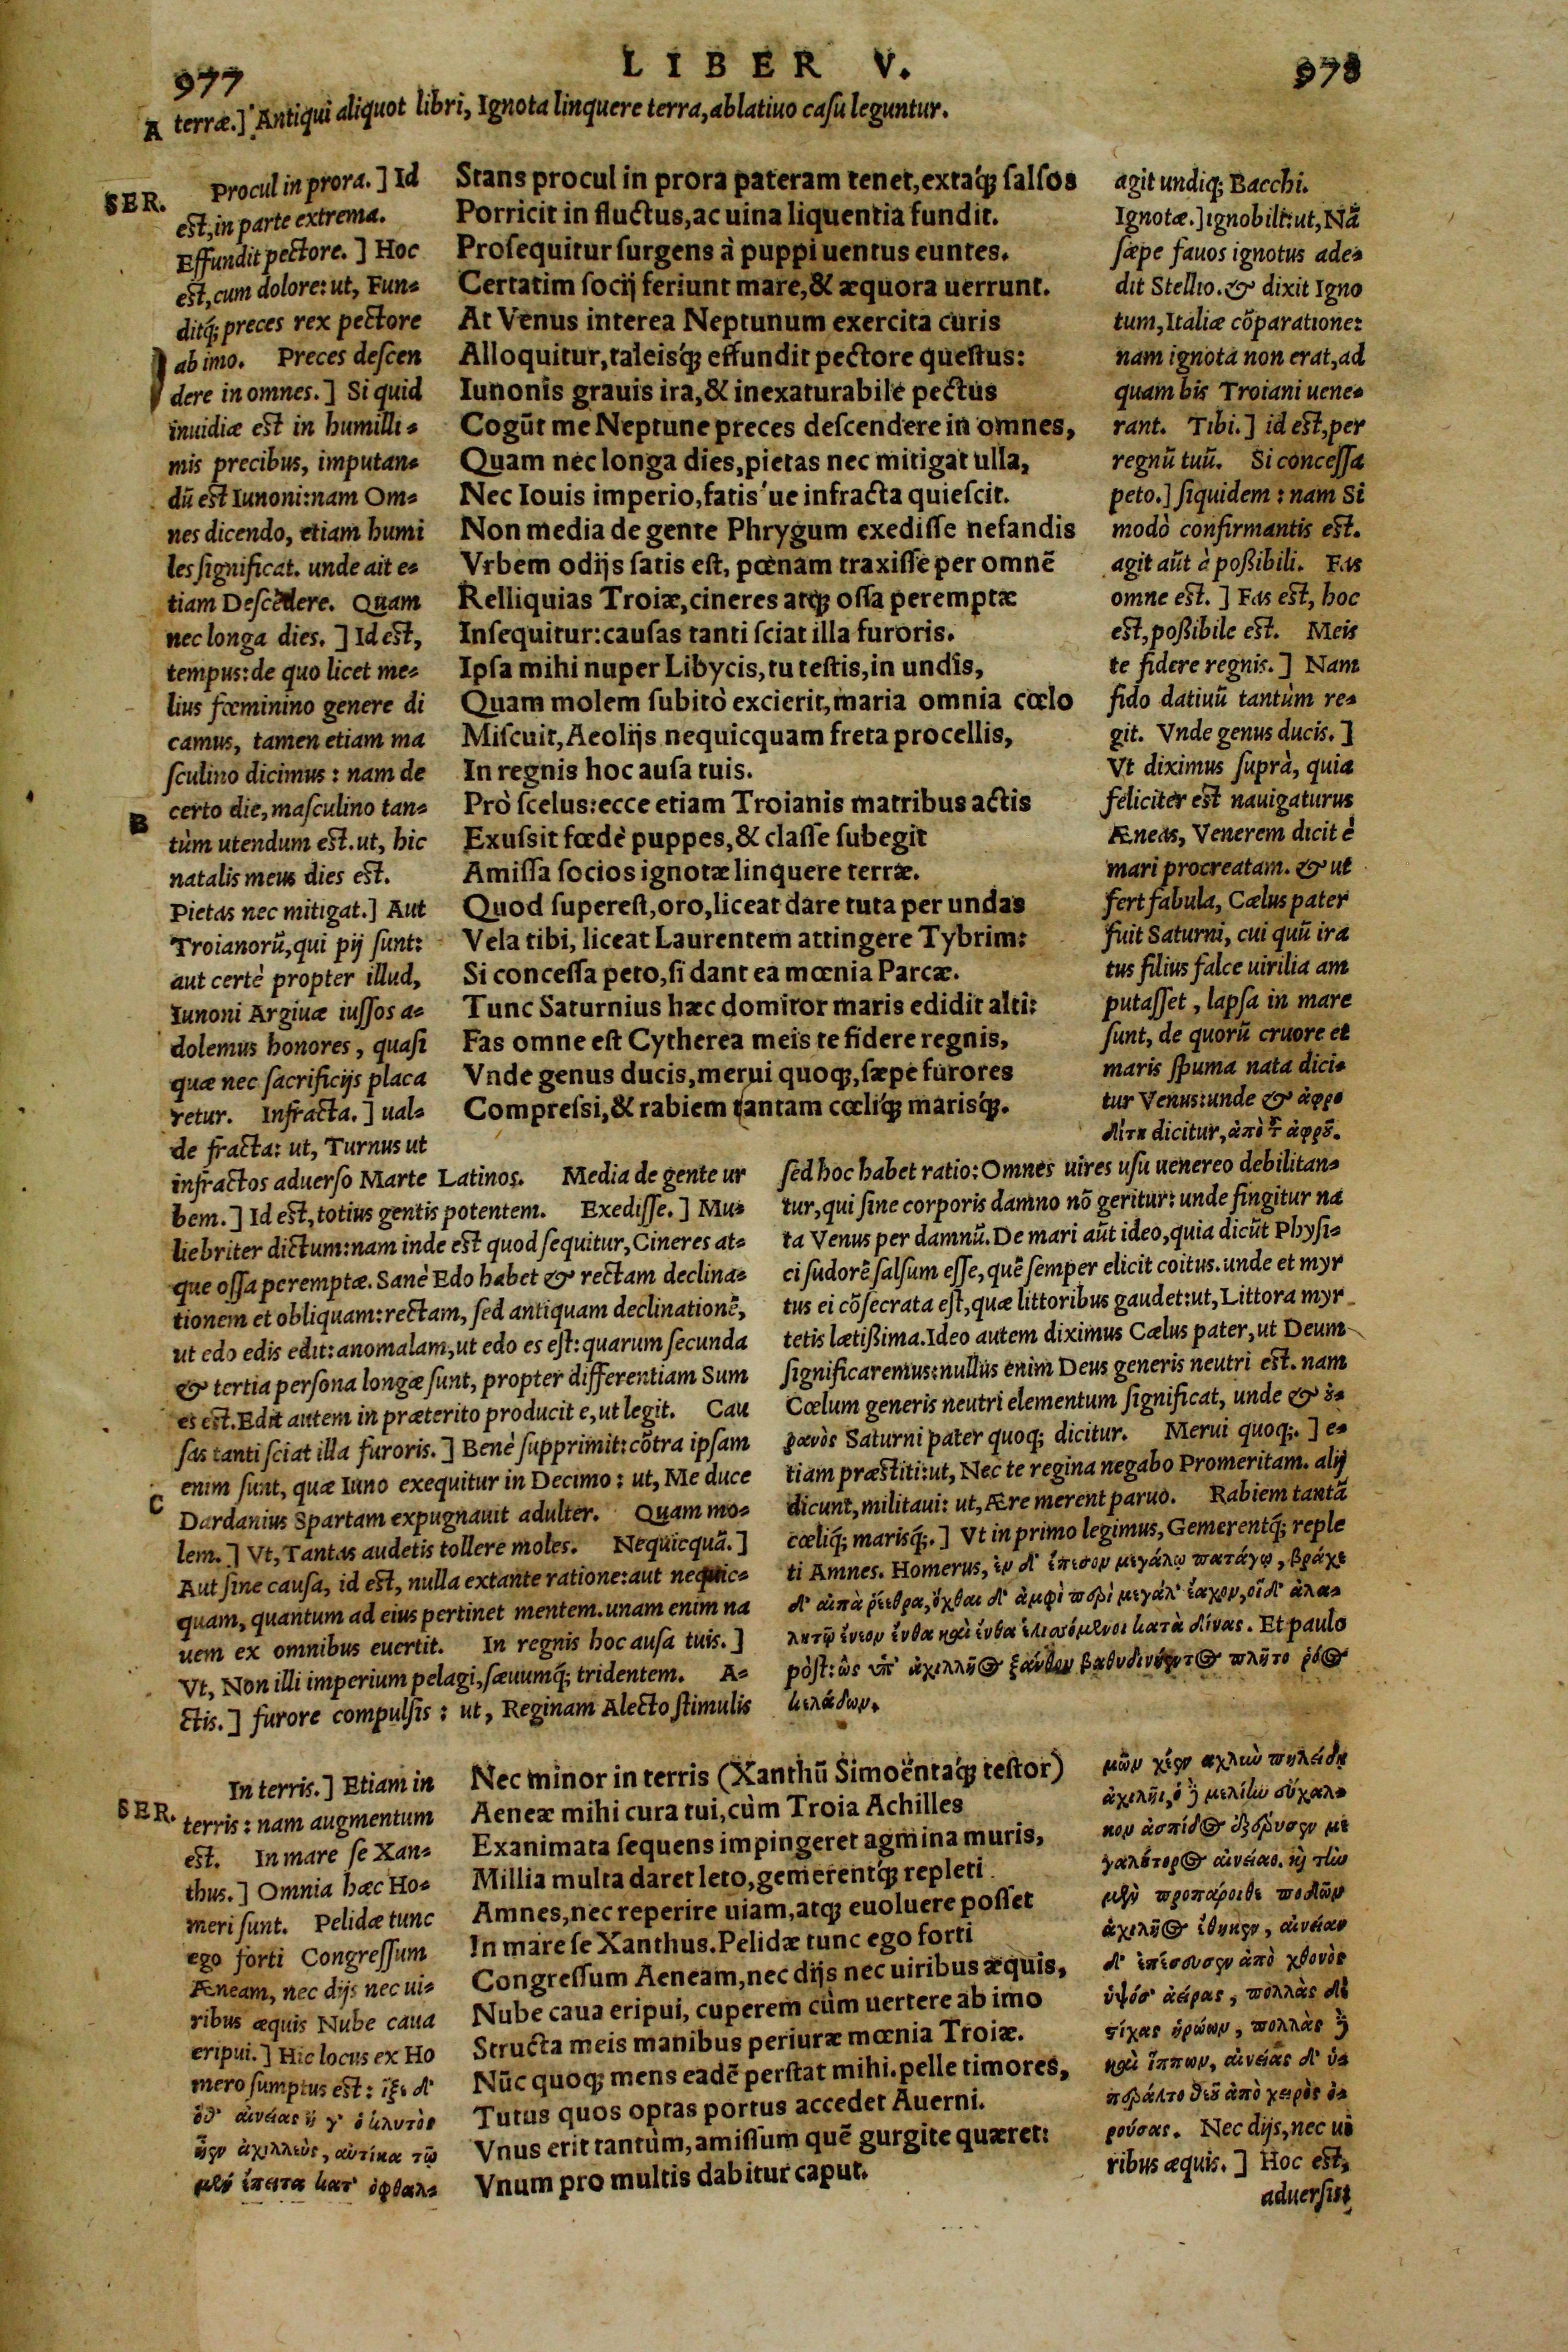 977
LIBER V.
978
A terræ.] Antiqui aliquot libri, Ignota linquere terra, ablatiuo casu leguntur.
SER.
Procul in prora.] Id
est, in parte extrema.
Effundit pectore.] Hoc
est, cum dolore: ut, Fun-
ditq́; preces rex pectore
ab imo. Preces descen
dere in omnes.] Si quid
inuidiæ est in humilli-
mis precibus, imputan-
dũ est Iunoni: nam Om-
nes dicendo, etiam humi
les significat. unde ait e-
tiam Descẽdere. Quam
nec longa dies.] Id est,
tempus: de quo licet me-
lius fœminino genere di
camus, tamen etiam ma
sculino dicimus: nam de
certo die, masculino tan-
B
tùm utendum est. ut, hic
natalis meus dies est.
Pietas nec mitigat.] Aut
Troianorũ, qui pij sunt:
aut certè propter illud,
Iunoni Argiuæ iussos a-
dolemus honores, quasi
quæ nec sacrificijs placa
retur. Infracta.] ual-
de fracta: ut, Turnus ut
Stans procul in prora pateram tenet, extaq́; salsos
Porricit in fluctus, ac uina liquentia fundit.
Prosequitur surgens à puppi uentus euntes.
Certatim socij feriunt mare, & æquora uerrunt.
At Venus interea Neptunum exercita curis
Alloquitur, taleisq́; effundit pectore questus:
Iunonis grauis ira, & inexaturabile pectus
Cogũt me Neptune preces descendere in omnes,
Quam nec longa dies, pietas nec mitigat ulla,
Nec Iouis imperio, fatis'ue infracta quiescit.
Non media de gente Phrygum exedisse nefandis
Vrbem odijs satis est, pœnam traxisse per omnẽ
Relliquias Troiæ, cineres atq; ossa peremptæ
Insequitur: causas tanti sciat illa furoris.
Ipsa mihi nuper Libycis, tu testis, in undis,
Quam molem subitò excierit, maria omnia cœlo
Miscuit, Aeolijs nequicquam freta procellis,
In regnis hoc ausa tuis.
Prò scelus: ecce etiam Troianis matribus actis
Exussit fœdè puppes, & classe subegit
Amissa socios ignotæ linquere terræ.
Quod superest, oro, liceat dare tuta per undas
Vela tibi, liceat Laurentem attingere Tybrim:
Si concessa peto, si dant ea mœnia Parcæ.
Tunc Saturnius hæc domitor maris edidit alti:
Fas omne est Cytherea meis te fidere regnis,
Vnde genus ducis, merui quoq;, sæpe furores
Compressi, & rabiem tantam cœliq́; marisq́;.
agit undiq; Bacchi.
Ignotæ.] ignobili: ut, Nã
sæpe fauos ignotus ade-
dit Stellio. & dixit Igno
tum, Italiæ cõparatione:
nam ignota non erat, ad
quam bis Troiani uene-
rant. Tibi.] id est, per
regnũ tuũ. Si concessa
peto.] siquidem: nam Si
modò confirmantis est.
agit aũt à possibili. Fas
omne est.] Fas est, hoc
est, possibile est. Meis
te fidere regnis.] Nam
fido datiuũ tantùm re-
git. Vnde genus ducis.]
Vt diximus suprà, quia
feliciter est nauigaturus
Æneas, Venerem dicit è
mari procreatam. & ut
fert fabula, Cælus pater
fuit Saturni, cui quũ ira
tus filius falce uirilia am
putasset, lapsa in mare
sunt, de quorũ cruore et
maris spuma nata dici-
tur Venus: unde & ἀφρο
δίτη dicitur, ἀπὸ τ̃ ἀφρȣ̃.
infractos aduerso Marte Latinos. Media de gente ur
bem.] Id est, totius gentis potentem. Exedisse.] Mu-
liebriter dictum: nam inde est quod sequitur, Cineres at-
que ossa peremptæ. Sanè Edo habet & rectam declina-
tionem et obliquam: rectam, sed antiquam declinationẽ,
ut edo edis edit: anomalam, ut edo es est: quarum secunda
& tertia persona longæ sunt, propter differentiam Sum
es est. Edit autem in præterito producit e, ut legit. Cau
sas tanti sciat illa furoris.] Benè supprimit: cõtra ipsam
enim sunt, quæ Iuno exequitur in Decimo: ut, Me duce
C
Dardanius Spartam expugnauit adulter. Quam mo-
lem.] Vt, Tantas audetis tollere moles. Nequicquã.]
Aut sine causa, id est, nulla extante ratione: aut nequic-
quam, quantum ad eius pertinet mentem. unam enim na
uem ex omnibus euertit. In regnis hoc ausa tuis.]
Vt, Non illi imperium pelagi, sæuumq́; tridentem. A-
ctis.] furore compulsis: ut, Reginam Alecto stimulis
sed hoc habet ratio: Omnes uires usu uenereo debilitan-
tur, qui sine corporis damno nõ geritur: unde fingitur na
ta Venus per damnũ. De mari aũt ideo, quia dicũt Physi-
ci sudorẽ salsum esse, quẽ semper elicit coitus. unde et myr
tus ei cõsecrata est, quæ littoribus gaudet: ut, Littora myr
tetis lætissima. Ideo autem diximus Cælus pater, ut Deum
significaremus: nullus enim Deus generis neutri est. nam
Cœlum generis neutri elementum significat, unde & ȣ̓-
ρανὸς Saturni pater quoq; dicitur. Merui quoq;.] e-
tiam præstiti: ut, Nec te regina negabo Promeritam. alij
dicunt, militaui: ut, Ære merent paruo. Rabiem tantã
cœliq́; marisq́;.] Vt in primo legimus, Gemerentq́; reple
ti Amnes. Homerus, ἐν δ' ἔπεσον μεγάλῳ πατάγῳ, βράχε
δ' αἰπὰ ῥέεθρα, ὄχθαι δ' ἀμφὶ περὶ μεγάλ' ἴαχον, οἵδ' ἀλα-
λητῷ ἔνεον ἔνθα καὶ ἔνθα ἑλισσόμενοι κατὰ δίνας. Et paulo
pòst: ὣς ὑπ' ἀχιλλῆος ξάνθου βαθυδινήεντος πλῆτο ῥόος
κελάδων.
SER.
In terris.] Etiam in
terris: nam augmentum
est. In mare se Xan-
thus.] Omnia hæc Ho-
meri sunt. Pelidæ tunc
ego forti Congressum
Æneam, nec dijs nec ui-
ribus æquis Nube caua
eripui.] Hic locus ex Ho
mero sumptus est: ἷξε δ'
ὅθ' αἰνείας ἠ γ' ὁ κλυτὸς
ἦεν ἀχιλλεὺς, αὐτίκα τῷ
μὲν ἔπειτα κατ' ὀφθαλ-
Nec minor in terris (Xanthũ Simoëntaq́; testor)
Aeneæ mihi cura tui, cùm Troia Achilles
Exanimata sequens impingeret agmina muris,
Millia multa daret leto, gemerentq́; repleti
Amnes, nec reperire uiam, atq; euoluere posset
In mare se Xanthus. Pelidæ tunc ego forti
Congressum Aeneam, nec dijs nec uiribus æquis,
Nube caua eripui, cuperem cùm uertere ab imo
Structa meis manibus periuræ mœnia Troiæ.
Nũc quoq; mens eadẽ perstat mihi. pelle timores,
Tutus quos optas portus accedet Auerni.
Vnus erit tantùm, amissum quẽ gurgite quæret:
Vnum pro multis dabitur caput.
μῶν χέεν αχλιὼ πηλείδη
ἀχιλῆι, ὁ δὲ μελίω εὔχαλ-
κον ἀσπίδος ἐξέρυσεν με
γαλήτορος αἰνείαο. καὶ τὼ
μὲν προπάροιθε ποδῶν
ἀχιλῆος ἔθηκεν, αἰνείαν
δ' ἐπέσσυσεν ἀπὸ χθονὸς
ὑψόσ' ἀείρας, πολλὰς δὲ
στίχας ἡρώων, πολλὰς δὲ
καὶ ἵππων, αἰνείας δ' ὑ-
περάλτο θεȣ̃ ἀπὸ χειρὸς ὀ-
ρούσας. Nec dijs, nec ui
ribus æquis.] Hoc est,
aduersis: